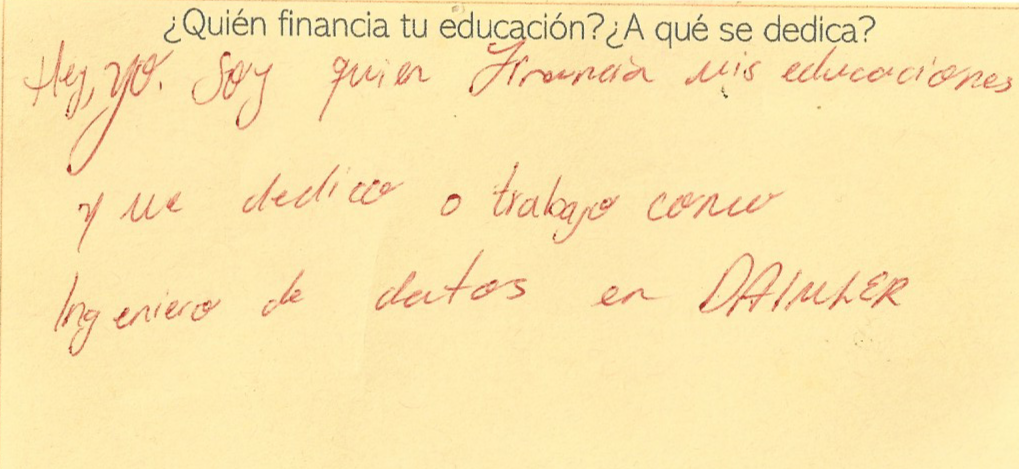 ¿Quién financia tu educación?¿A qué se dedica?
Hey, yo. Soy quien financia mis educaciones
y me dedico o trabajo como
Ingeniero de datos en DAIMLER